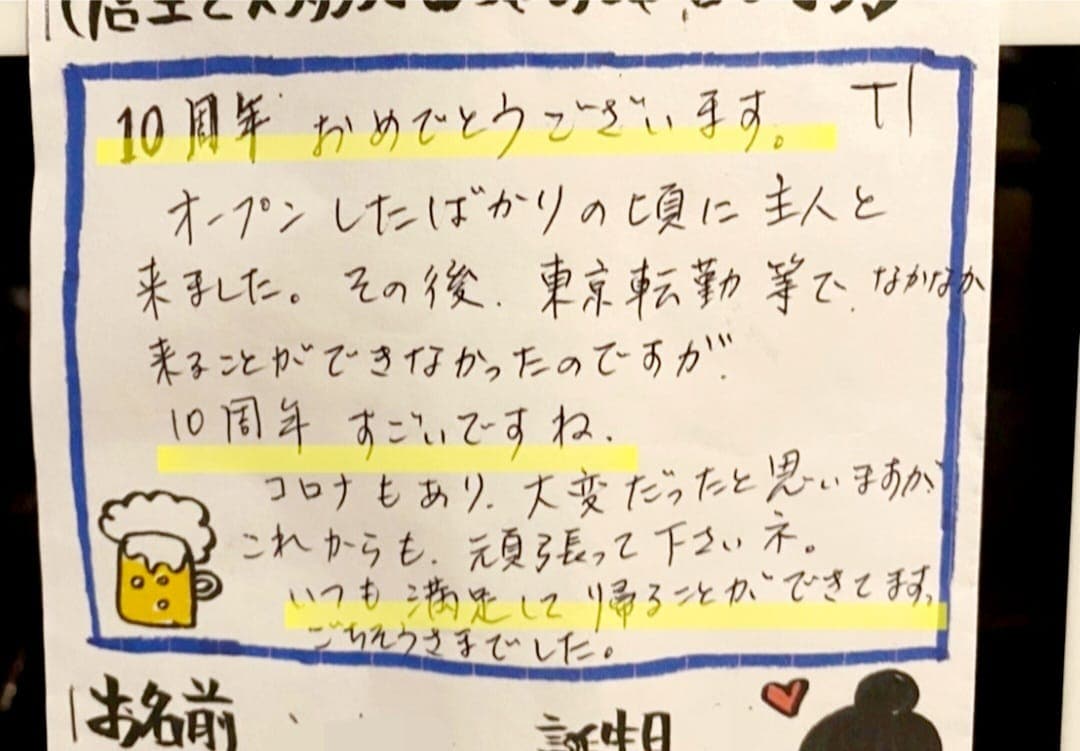 10周年 おめでとうございます。
オープンしたばかりの頃に主人と
来ました。その後、東京転勤等で、なかなか
来ることができなかったのですが、
10周年 すごいですね。
コロナもあり、大変だったと思いますが、
これからも、頑張って下さいネ。
いつも満足して帰ることができてます。
ごちそうさまでした。
お名前
誕生日